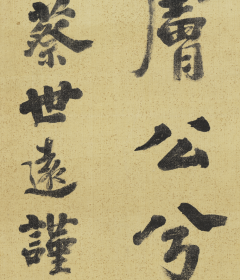 膚公兮
蔡世遠謹